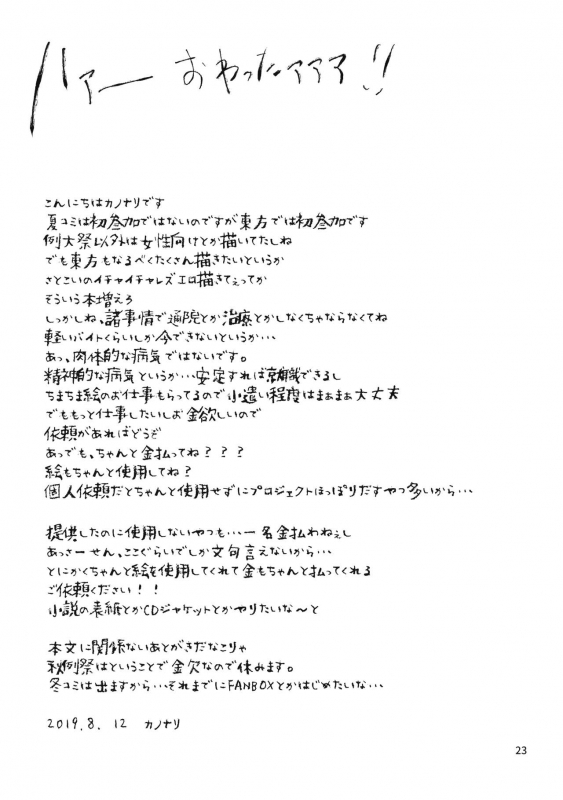 ハァー おわったァァァ!!
こんにちはカノナリです
夏コミは初参加ではないのですが東方では初参加です
例大祭以外は女性向けとか描いてたしね
でも東方もなるべくたくさん描きたいというか
さとこいのイチャイチャレズエロ描きてぇってか
そういう本増えろ
しっかしね、諸事情で通院とか治療とかしなくちゃならなくてね
軽いバイトくらいしか今できないというか…
あっ、肉体的な病気ではないです。
精神的な病気というか…安定すれば就職できるし
ちまちま絵のお仕事もらってるので小遣い程度はまぁまぁ大丈夫
でももっと仕事したいしお金欲しいので
依頼があればどうぞ
あっでも、ちゃんと金払ってね???
絵もちゃんと使用してね?
個人依頼だとちゃんと使用せずにプロジェクトほっぽりだすやつ多いから…
提供したのに使用しないやつも…一名金払わねぇし
あっさーせん、ここぐらいでしか文句言えないから…
とにかくちゃんと絵を使用してくれて金もちゃんと払ってくれる
ご依頼ください!!
小説の表紙とかCDジャケットとかやりたいな~と
本文に関係ないあとがきだなこりゃ
秋例祭はということで金欠なので休みます。
冬コミは出ますから…それまでにFANBOXとかはじめたいな…
2019.8.12 カノナリ
23